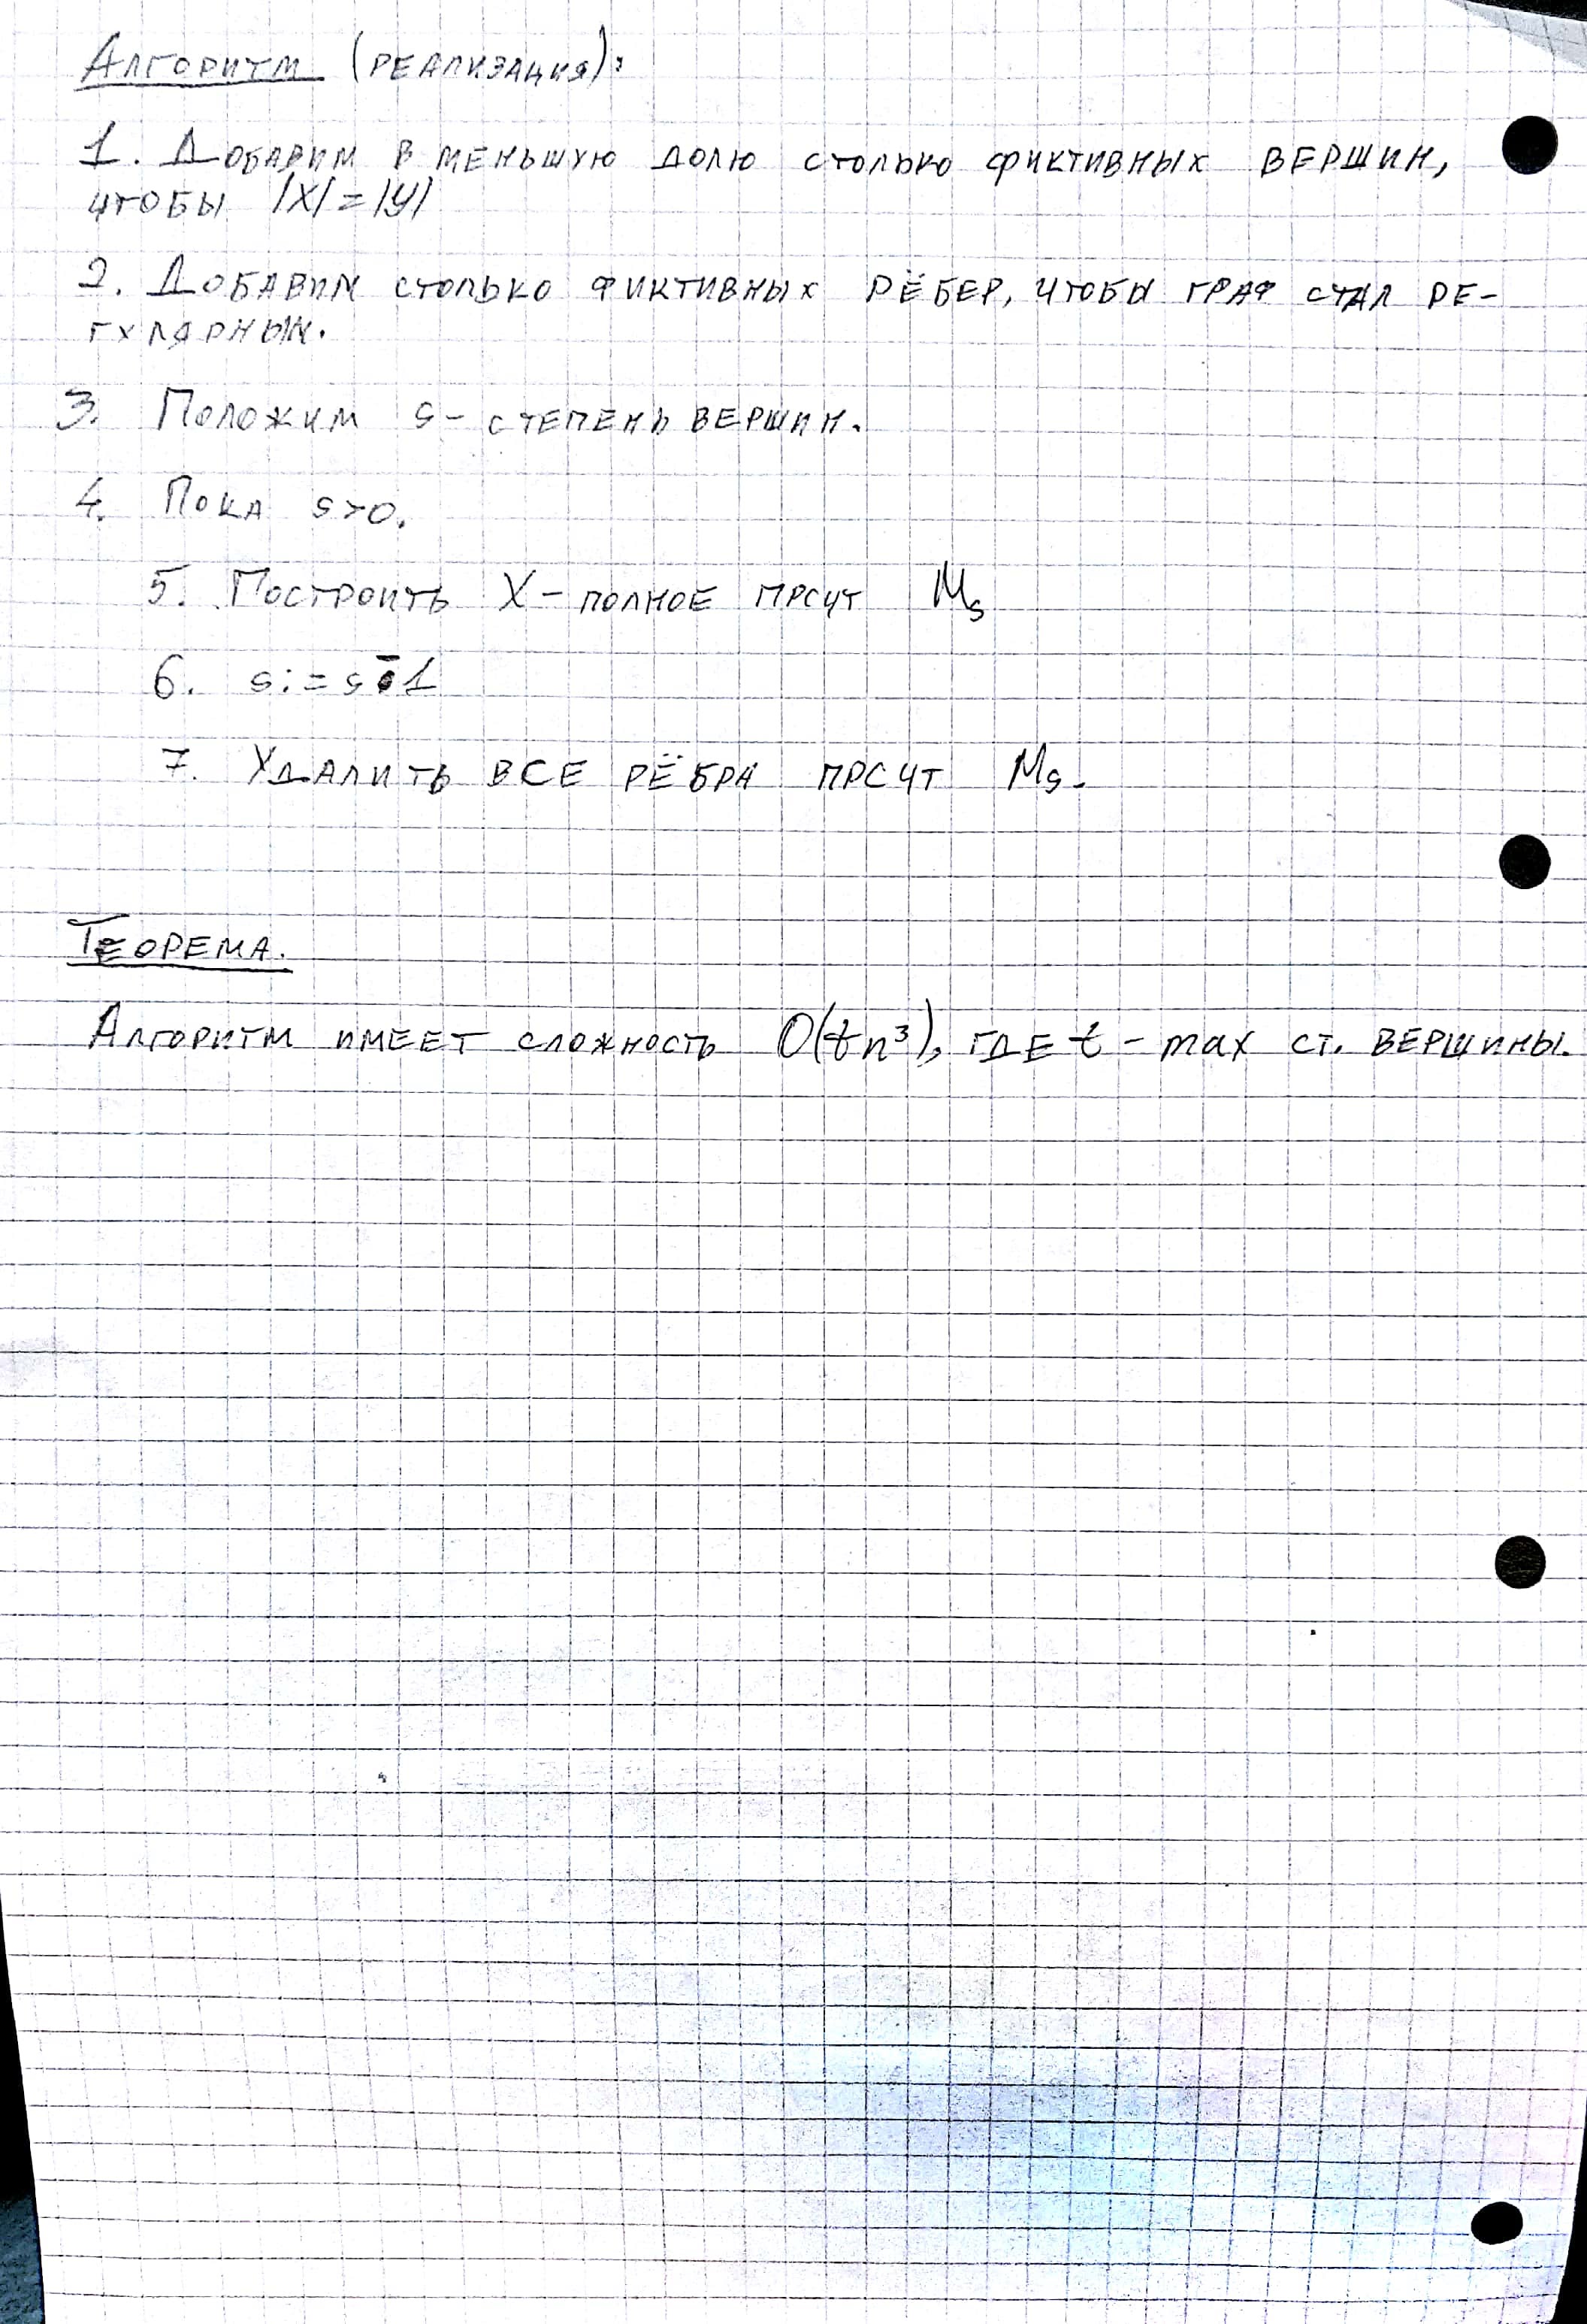 Алгоритм (реализация):
1. Добавим в меньшую долю столько фиктивных вершин,
чтобы |X|=|Y|
2. Добавим столько фиктивных рёбер, чтобы граф стал ре-
гулярным.
3. Положим s - степень вершин.
4. Пока s>0.
5. Построить X - полное прсчт Ms
6. s:=s-1
7. Удалить все рёбра прсчт Ms.
Теорема.
Алгоритм имеет сложность O(tn³), где t - max ст. вершины.